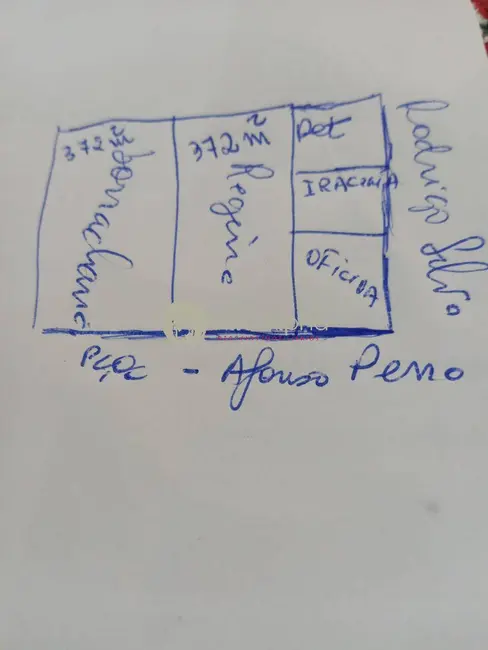 372 m²
Borracharia
372 m²
Regina
Pet
IRACEMA
OFICINA
Rodrigo Silva
- Afonso Penno